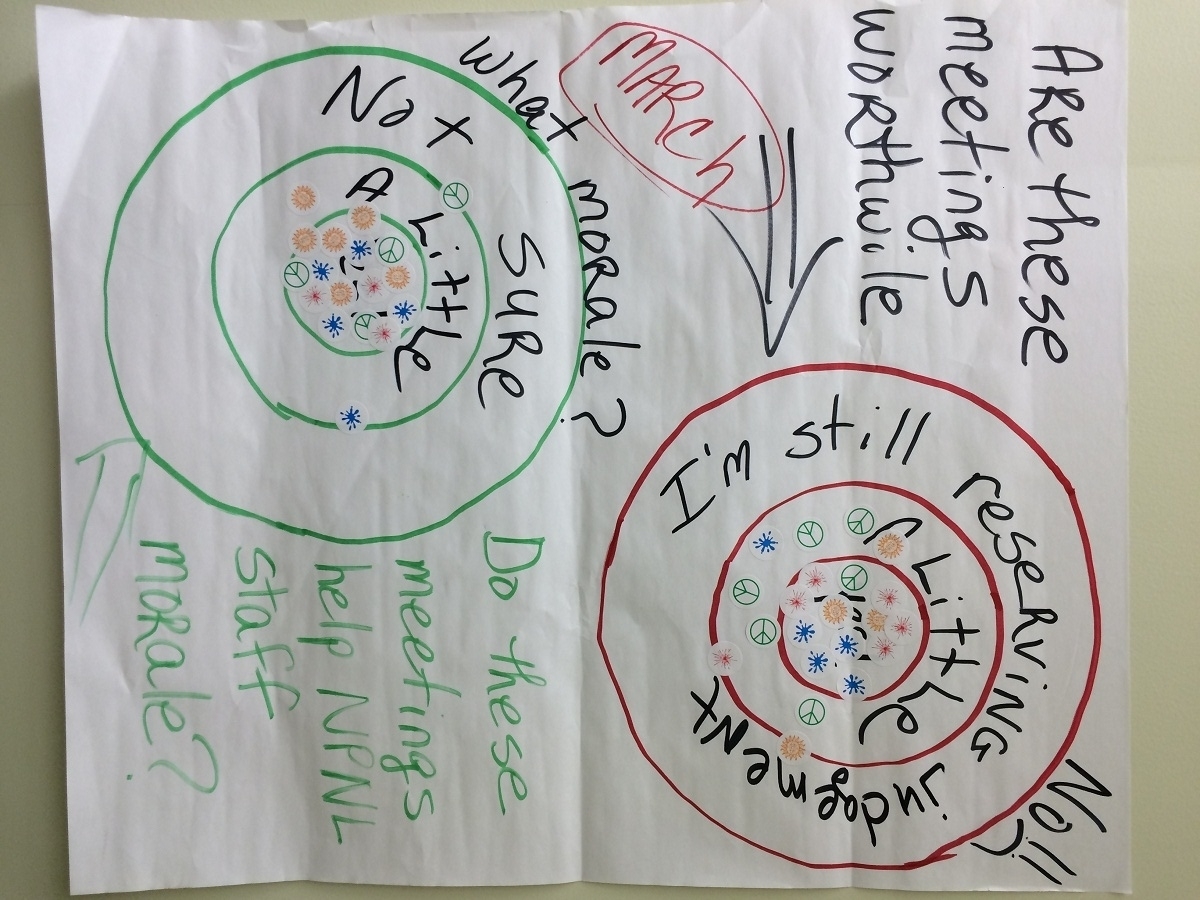 ARe these
meetings
WORthwile
MARCh
No!!
I'm still reserVING judgement
A Little
what moRale?
Not SURe
A Little
Do these
meetings
help NPNL
staff
moRale?